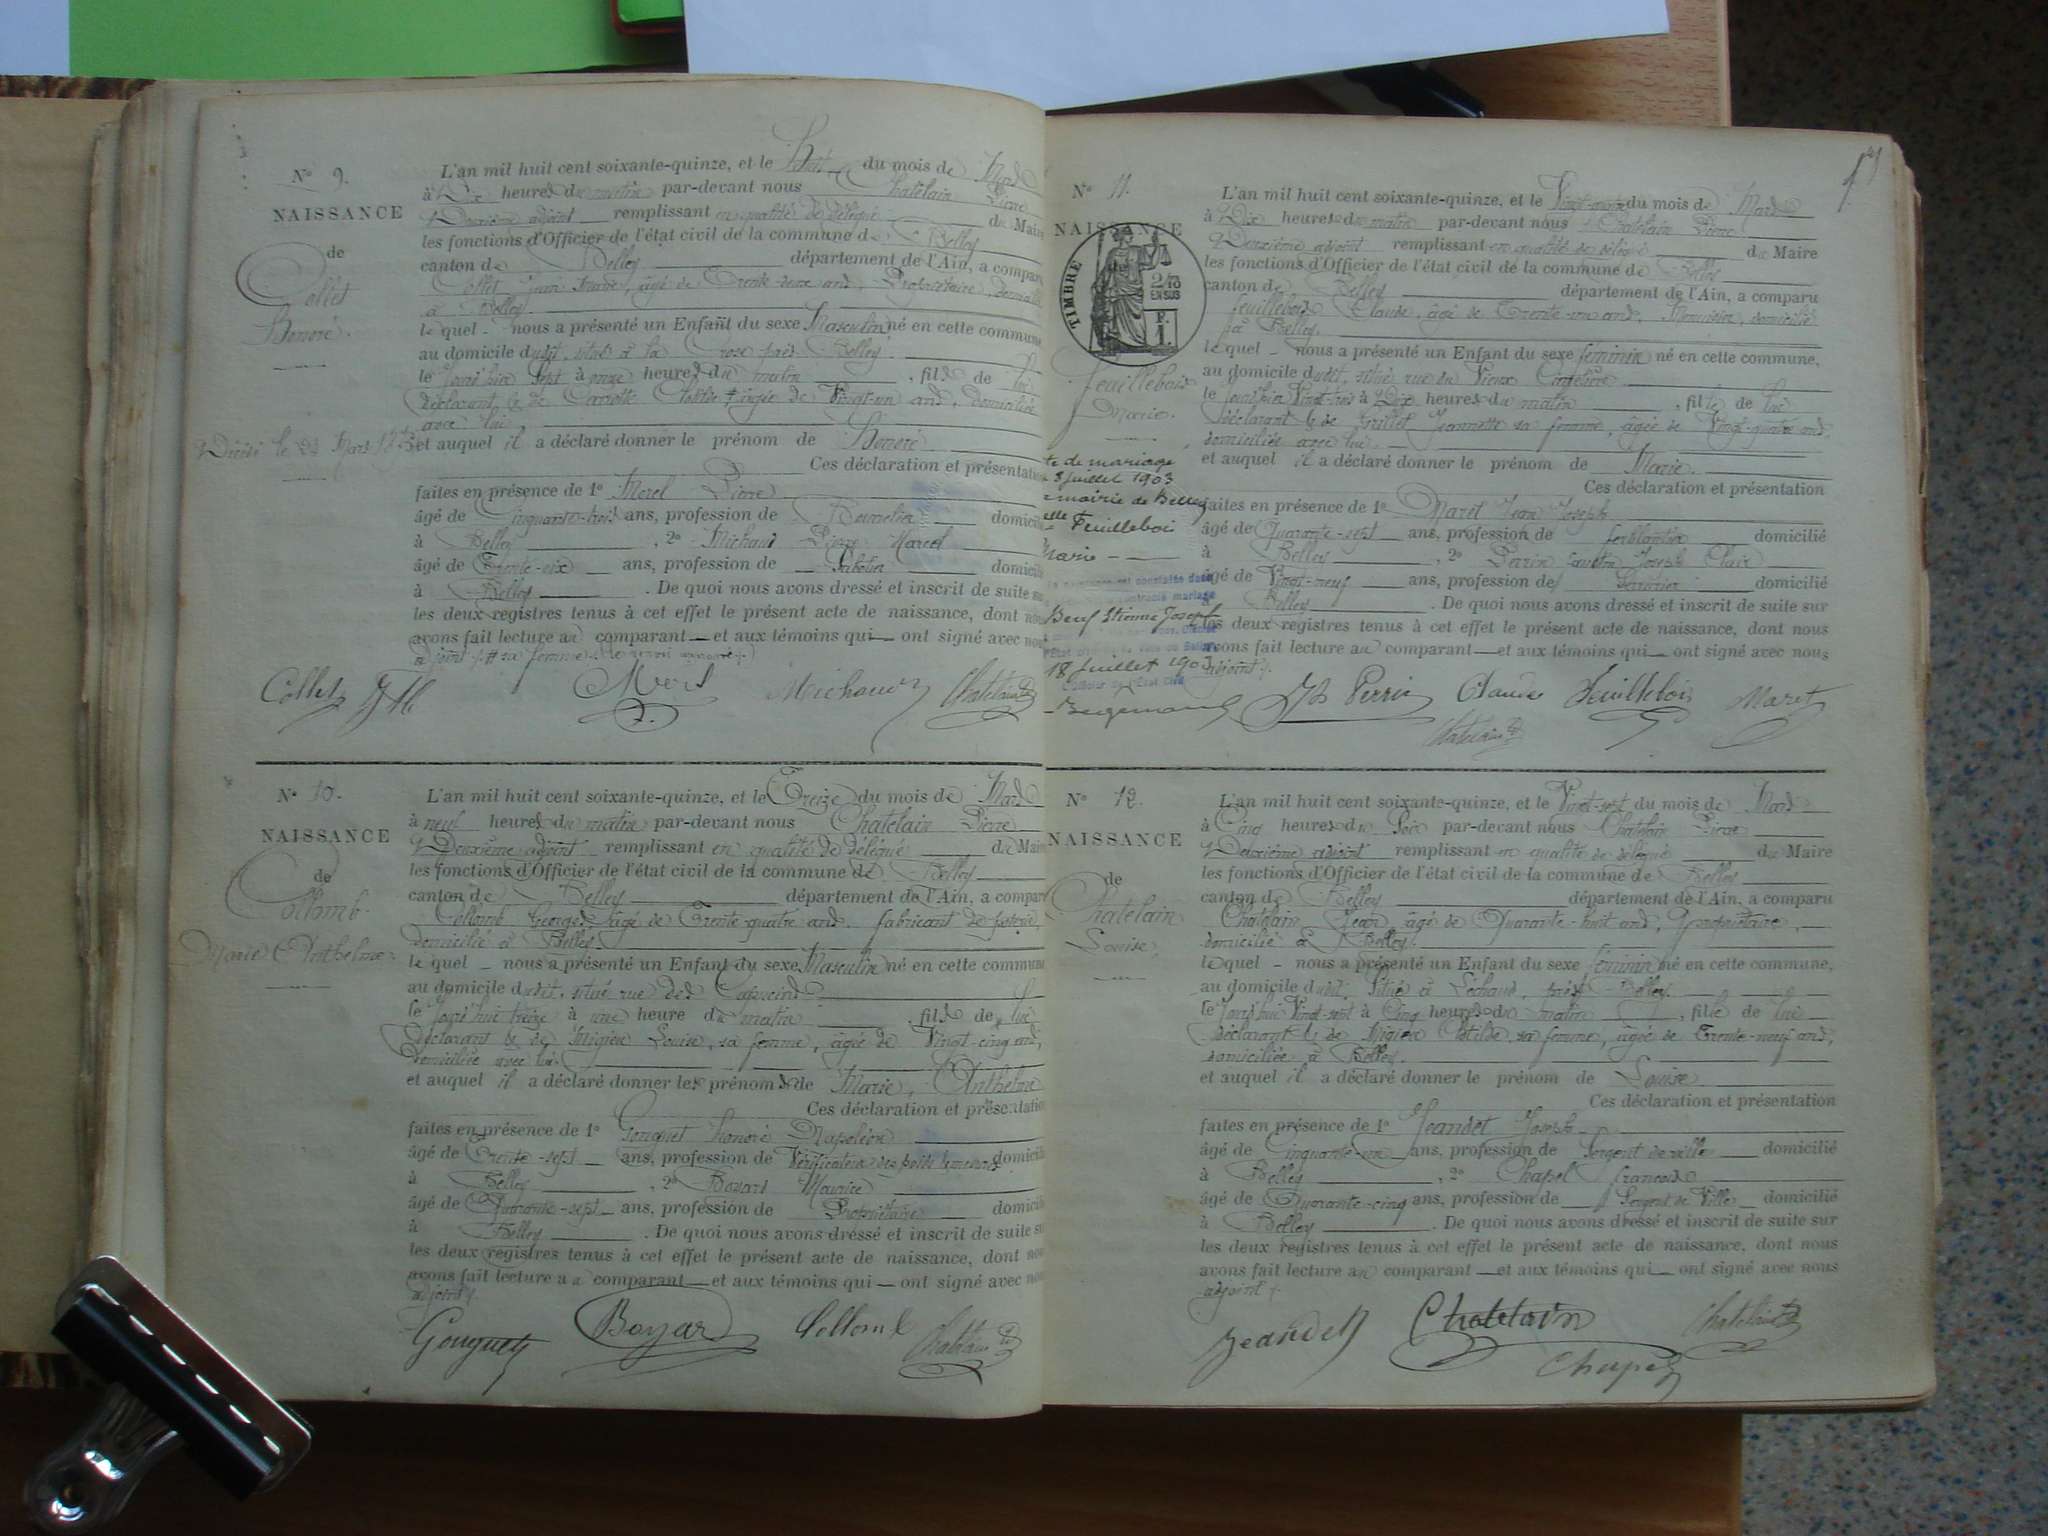 N° 9.
NAISSANCE
de
Collet
Honoré.
L'an mil huit cent soixante-quinze, et le huit du mois de Mars
à Dix heures du matin par-devant nous Chatelain Pierre
Deuxième adjoint remplissant en qualité de délégué du Maire
les fonctions d'Officier de l'état civil de la commune de Belley
canton de Belley département de l'Ain, a comparu
Collet Jean Marie, âgé de Trente deux ans, Propriétaire, domicilié
à Belley.
le quel nous a présenté un Enfant du sexe Masculin né en cette commune,
au domicile dudit, situé à la près Belley
le sept à onze heures du matin, fils de lui
déclarant & de Clotilde âgée de Vingt-un ans, domiciliée
avec lui.
Décédé le 24 Mars
et auquel il a déclaré donner le prénom de Honoré
Ces déclaration et présentation
faites en présence de 1° Morel Pierre
âgé de Cinquante-trois ans, profession de domicilié
à Belley, 2° Michaud Pierre Marcel
âgé de Trente-six ans, profession de Sabotier domicilié
à Belley. De quoi nous avons dressé et inscrit de suite sur
les deux registres tenus à cet effet le présent acte de naissance, dont nous
avons fait lecture au comparant — et aux témoins qui — ont signé avec nous
adjoint. # sa femme
Collet JM Morel Michaud Chatelain
N° 10.
NAISSANCE
de
Collomb
Marie Anthelme
L'an mil huit cent soixante-quinze, et le Treize du mois de Mars
à neuf heures du matin par-devant nous Chatelain Pierre
Deuxième adjoint remplissant en qualité de délégué du Maire
les fonctions d'Officier de l'état civil de la commune de Belley
canton de Belley département de l'Ain, a comparu
Collomb Georges, âgé de Trente-quatre ans, fabricant de
domicilié à Belley
le quel nous a présenté un Enfant du sexe Masculin né en cette commune
au domicile dudit, situé rue des Capucins
le jourd'hui treize à une heure du matin, fils de lui
déclarant & de Migieu Louise, sa femme, âgée de Vingt-cinq ans,
domiciliée avec lui.
et auquel il a déclaré donner les prénoms de Marie, Anthelme
Ces déclaration et présentation
faites en présence de 1° Gouguet honoré Napoléon
âgé de Trente-sept ans, profession de Vérificateur des poids & mesures domicilié
à Belley, 2° Boyard Maurice
âgé de Quarante-sept ans, profession de Propriétaire domicilié
à Belley. De quoi nous avons dressé et inscrit de suite sur
les deux registres tenus à cet effet le présent acte de naissance, dont nous
avons fait lecture au comparant — et aux témoins qui — ont signé avec nous
adjoint.
Gouguet Boyard Collomb Chatelain
N° 11.
NAISSANCE
TIMBRE
2/10
EN SUS
F.
1.
Feuillebois
Marie.
te de mariage
8 juillet 1903
mairie de Belley
elle Feuillebois
Marie
Beuf Etienne Joseph
18 Juillet 1903
L'Officier de l'État Civil
L'an mil huit cent soixante-quinze, et le Vingt-trois du mois de Mars
à Dix heures du matin par-devant nous Chatelain Pierre
Deuxième adjoint remplissant en qualité de délégué du Maire
les fonctions d'Officier de l'état civil de la commune de Belley
canton de Belley département de l'Ain, a comparu
feuillebois Claude, âgé de Trente-un ans, Menuisier, domicilié
à Belley.
le quel nous a présenté un Enfant du sexe féminin né en cette commune,
au domicile dudit, situé rue du Vieux Cimetière
le jourd'hui Vingt-trois à Dix heures du matin, fille de lui
déclarant & de Grillet Jeannette sa femme, âgée de Vingt-quatre ans,
domiciliée avec lui
et auquel il a déclaré donner le prénom de Marie.
Ces déclaration et présentation
faites en présence de 1° Maret Jean Joseph
âgé de Quarante-sept ans, profession de ferblantier domicilié
à Belley, 2° Perrin Joseph Clair
âgé de Vingt-neuf ans, profession de domicilié
à Belley. De quoi nous avons dressé et inscrit de suite sur
les deux registres tenus à cet effet le présent acte de naissance, dont nous
avons fait lecture au comparant — et aux témoins qui — ont signé avec nous
adjoint.
Jh Perrin Claude Feuillebois Maret
Chatelain
N° 12.
NAISSANCE
de
Chatelain
Louise.
L'an mil huit cent soixante-quinze, et le Vingt-sept du mois de Mars
à Cinq heures du Soir par-devant nous Chatelain Pierre
Deuxième adjoint remplissant en qualité de délégué du Maire
les fonctions d'Officier de l'état civil de la commune de Belley
canton de Belley département de l'Ain, a comparu
Chatelain Jean âgé de Quarante-huit ans, Propriétaire,
domicilié à Belley.
lequel nous a présenté un Enfant du sexe féminin né en cette commune,
au domicile dudit, Situé à Lechaud, près Belley.
le jourd'hui Vingt-sept à Cinq heures du matin, fille de lui
déclarant & de Migieu Clotilde sa femme, âgée de Trente-neuf ans,
domiciliée à Belley.
et auquel il a déclaré donner le prénom de Louise
Ces déclaration et présentation
faites en présence de 1° Jeandet Joseph
âgé de Cinquante-un ans, profession de Sergent de ville domicilié
à Belley, 2° Chapel françois
âgé de Quarante-cinq ans, profession de Sergent de Ville domicilié
à Belley. De quoi nous avons dressé et inscrit de suite sur
les deux registres tenus à cet effet le présent acte de naissance, dont nous
avons fait lecture au comparant — et aux témoins qui — ont signé avec nous
adjoint.
Jeandet Chatelain Chatelain
Chapel